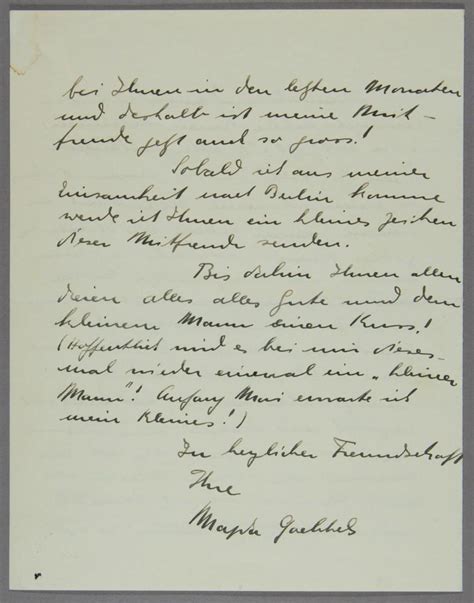 bei Ihnen in den letzten Monaten
und deshalb ist meine Mit-
freude jetzt auch so gross!
Sobald ich aus meiner
Einsamkeit nach Berlin komme
werde ich Ihnen ein kleines Zeichen
dieser Mitfreude senden.
Bis dahin Ihnen allen
dreien alles alles Gute und dem
kleinen Mann einen Kuss!
(Hoffentlich wird es bei mir dieses-
mal wieder einmal ein „kleiner
Mann"! Anfang Mai erwarte ich
mein Kleines!)
In herzlicher Freundschaft
Ihre
Magda Goebbels